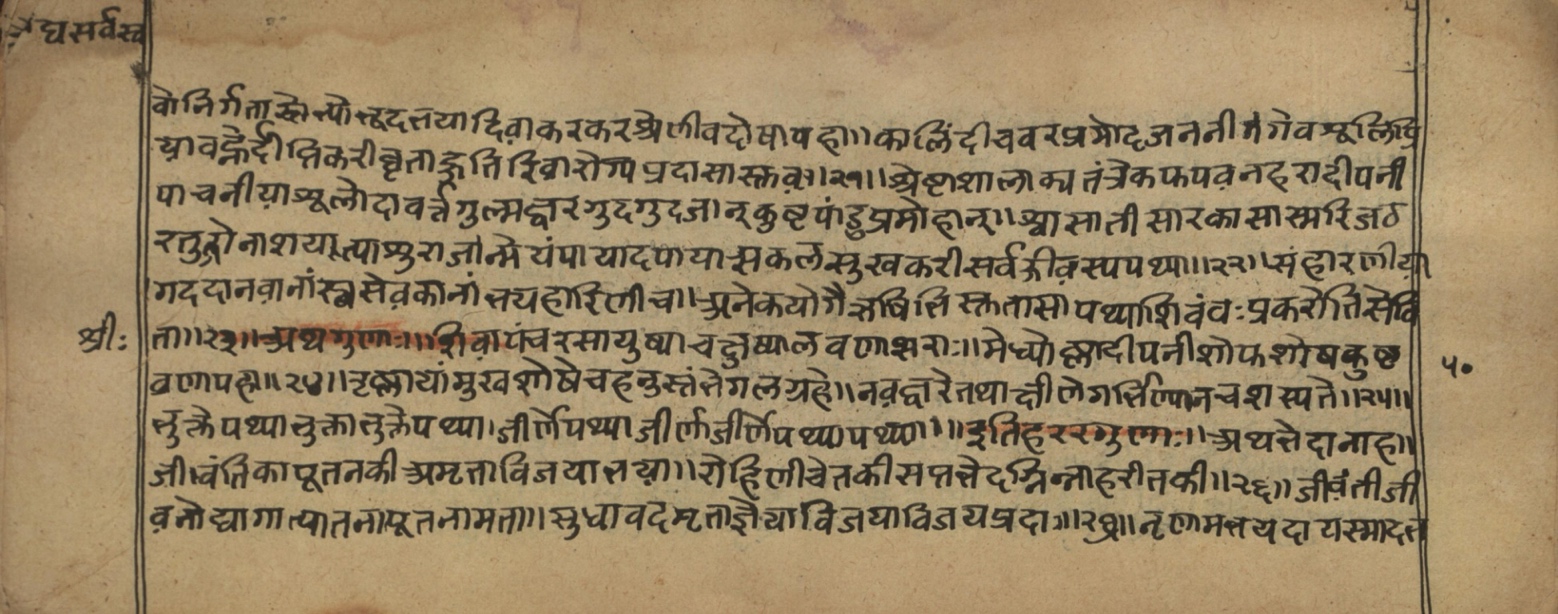 वैद्यसर्वस्व
वोनिर्गता द्भुदभया दिवाकरकरश्रेणीवदोषापहा॥कालिंदीचवरप्रमोदजननी गंगेवशूलिप्रि
यावह्नेर्दीप्तिकरीघृताहुतिरिवारोग्यप्रदासास्तुवः॥२१॥श्रेष्टाशालाक्यतंत्रेकफपवनहरादीपनी
पाचनीयाशूलोदावर्त्तगुल्मज्वरगुदगुदजान्कुष्टपांडुप्रमोहान्॥श्वासातीसारकासास्मरिजठ
नाशयत्याशु पायादपाया सकलसुखकरीसर्वजीवस्यपथ्या॥२२॥संहारणीया
गददानवानांस्वसेवकानांभयहारिणीच॥अनेकयोगैऋषिभिस्तुतासापथ्याशिवंवःप्रकरोतिसेवि
श्रीः
ता॥२३॥अथगुणाः॥शिवापंचरसायुष्याचक्षुष्यालवणाशराः॥मेध्योष्णादीपनीशोफशोषकुष्ट
५०
व्रणापहा॥२४॥तृष्णायांमुखशोषेचहनुस्तंभेगलग्रहे॥नवज्वरेतथाक्षीणेगर्भिण्यांनचशस्यते॥२५॥
भुक्तेपथ्याभुक्ताभुक्तेपथ्या।जीर्णेपथ्याजीर्णाजीर्णेपथ्यापथ्या॥॥इतिहररगुणाः॥अथभेदानाह॥
जीवंतिकापूतनकीअमृताविजयाभया॥रोहिणीचेतकीसप्तभेदभिन्नाहरीतकी॥२६॥जीवंतीजी
वनोद्योगात्पातनापूतनामता॥सुधावदमृताज्ञेयाविजयाविजयप्रदा॥२७॥नृणामभयदायस्मादभ